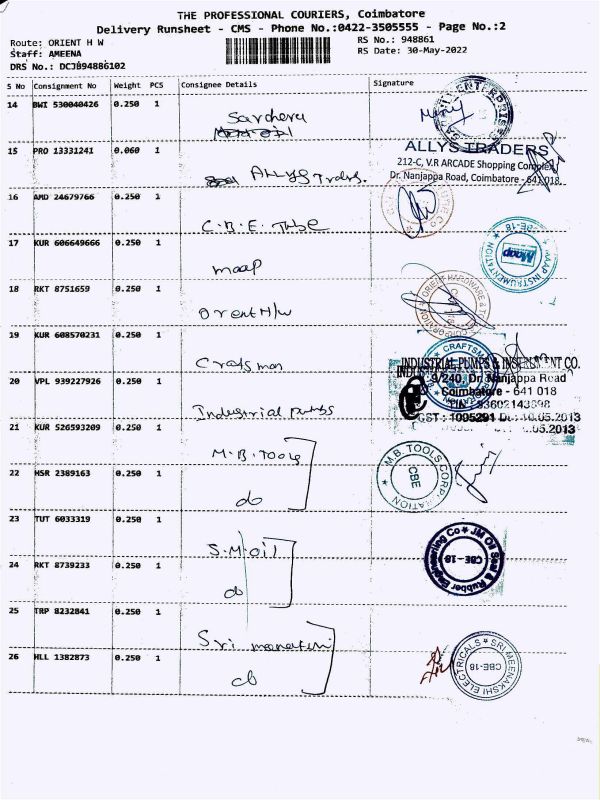 THE PROFESSIONAL COURIERS, Coimbatore
Delivery Runsheet - CMS - Phone No.:0422-3505555 - Page No.:2
Route: ORIENT H W
RS No.: 948861
Staff: AMEENA
RS Date: 30-May-2022
DRS No.: DCJ894886102
S No Consignment No Weight PCS Consignee Details Signature
14 BWI 530040426 0.250 1
15 PRO 13331241 0.060 1 ALLYS Traders.
ALLYS TRADERS
212-C, V.R ARCADE Shopping Complex
Dr. Nanjappa Road, Coimbatore - 641 018
16 AMD 24679766 0.250 1 C.B.E. Tube
17 KUR 606649666 0.250 1 maap
MAAP INSTRUMENTATION CBE-18
Maap
18 RKT 8751659 0.250 1 Orent H/w
ORIENT HARDWARE & T
CORPORATION
19 KUR 608570231 0.250 1 Crafsman
CRAFTSM
20 VPL 939227926 0.250 1 Industrial pumps
INDUSTRIAL PUMPS & INSTRUMENT CO.
9/240, Dr. Nanjappa Road
Coimbatore - 641 018
10.05.2013
.05.2013
21 KUR 526593209 0.250 1 M.B. Tools
M.B. TOOLS CORPORATION
CBE
22 HSR 2389163 0.250 1 do
23 TUT 6033319 0.250 1 S.M oil
JM Oil Seal & Rubber Engineering Co
CBE-18
24 RKT 8739233 0.250 1 do
25 TRP 8232841 0.250 1 Sri
SRI MEENAKSHI ELECTRICALS
CBE-18
26 HLL 1382873 0.250 1 do